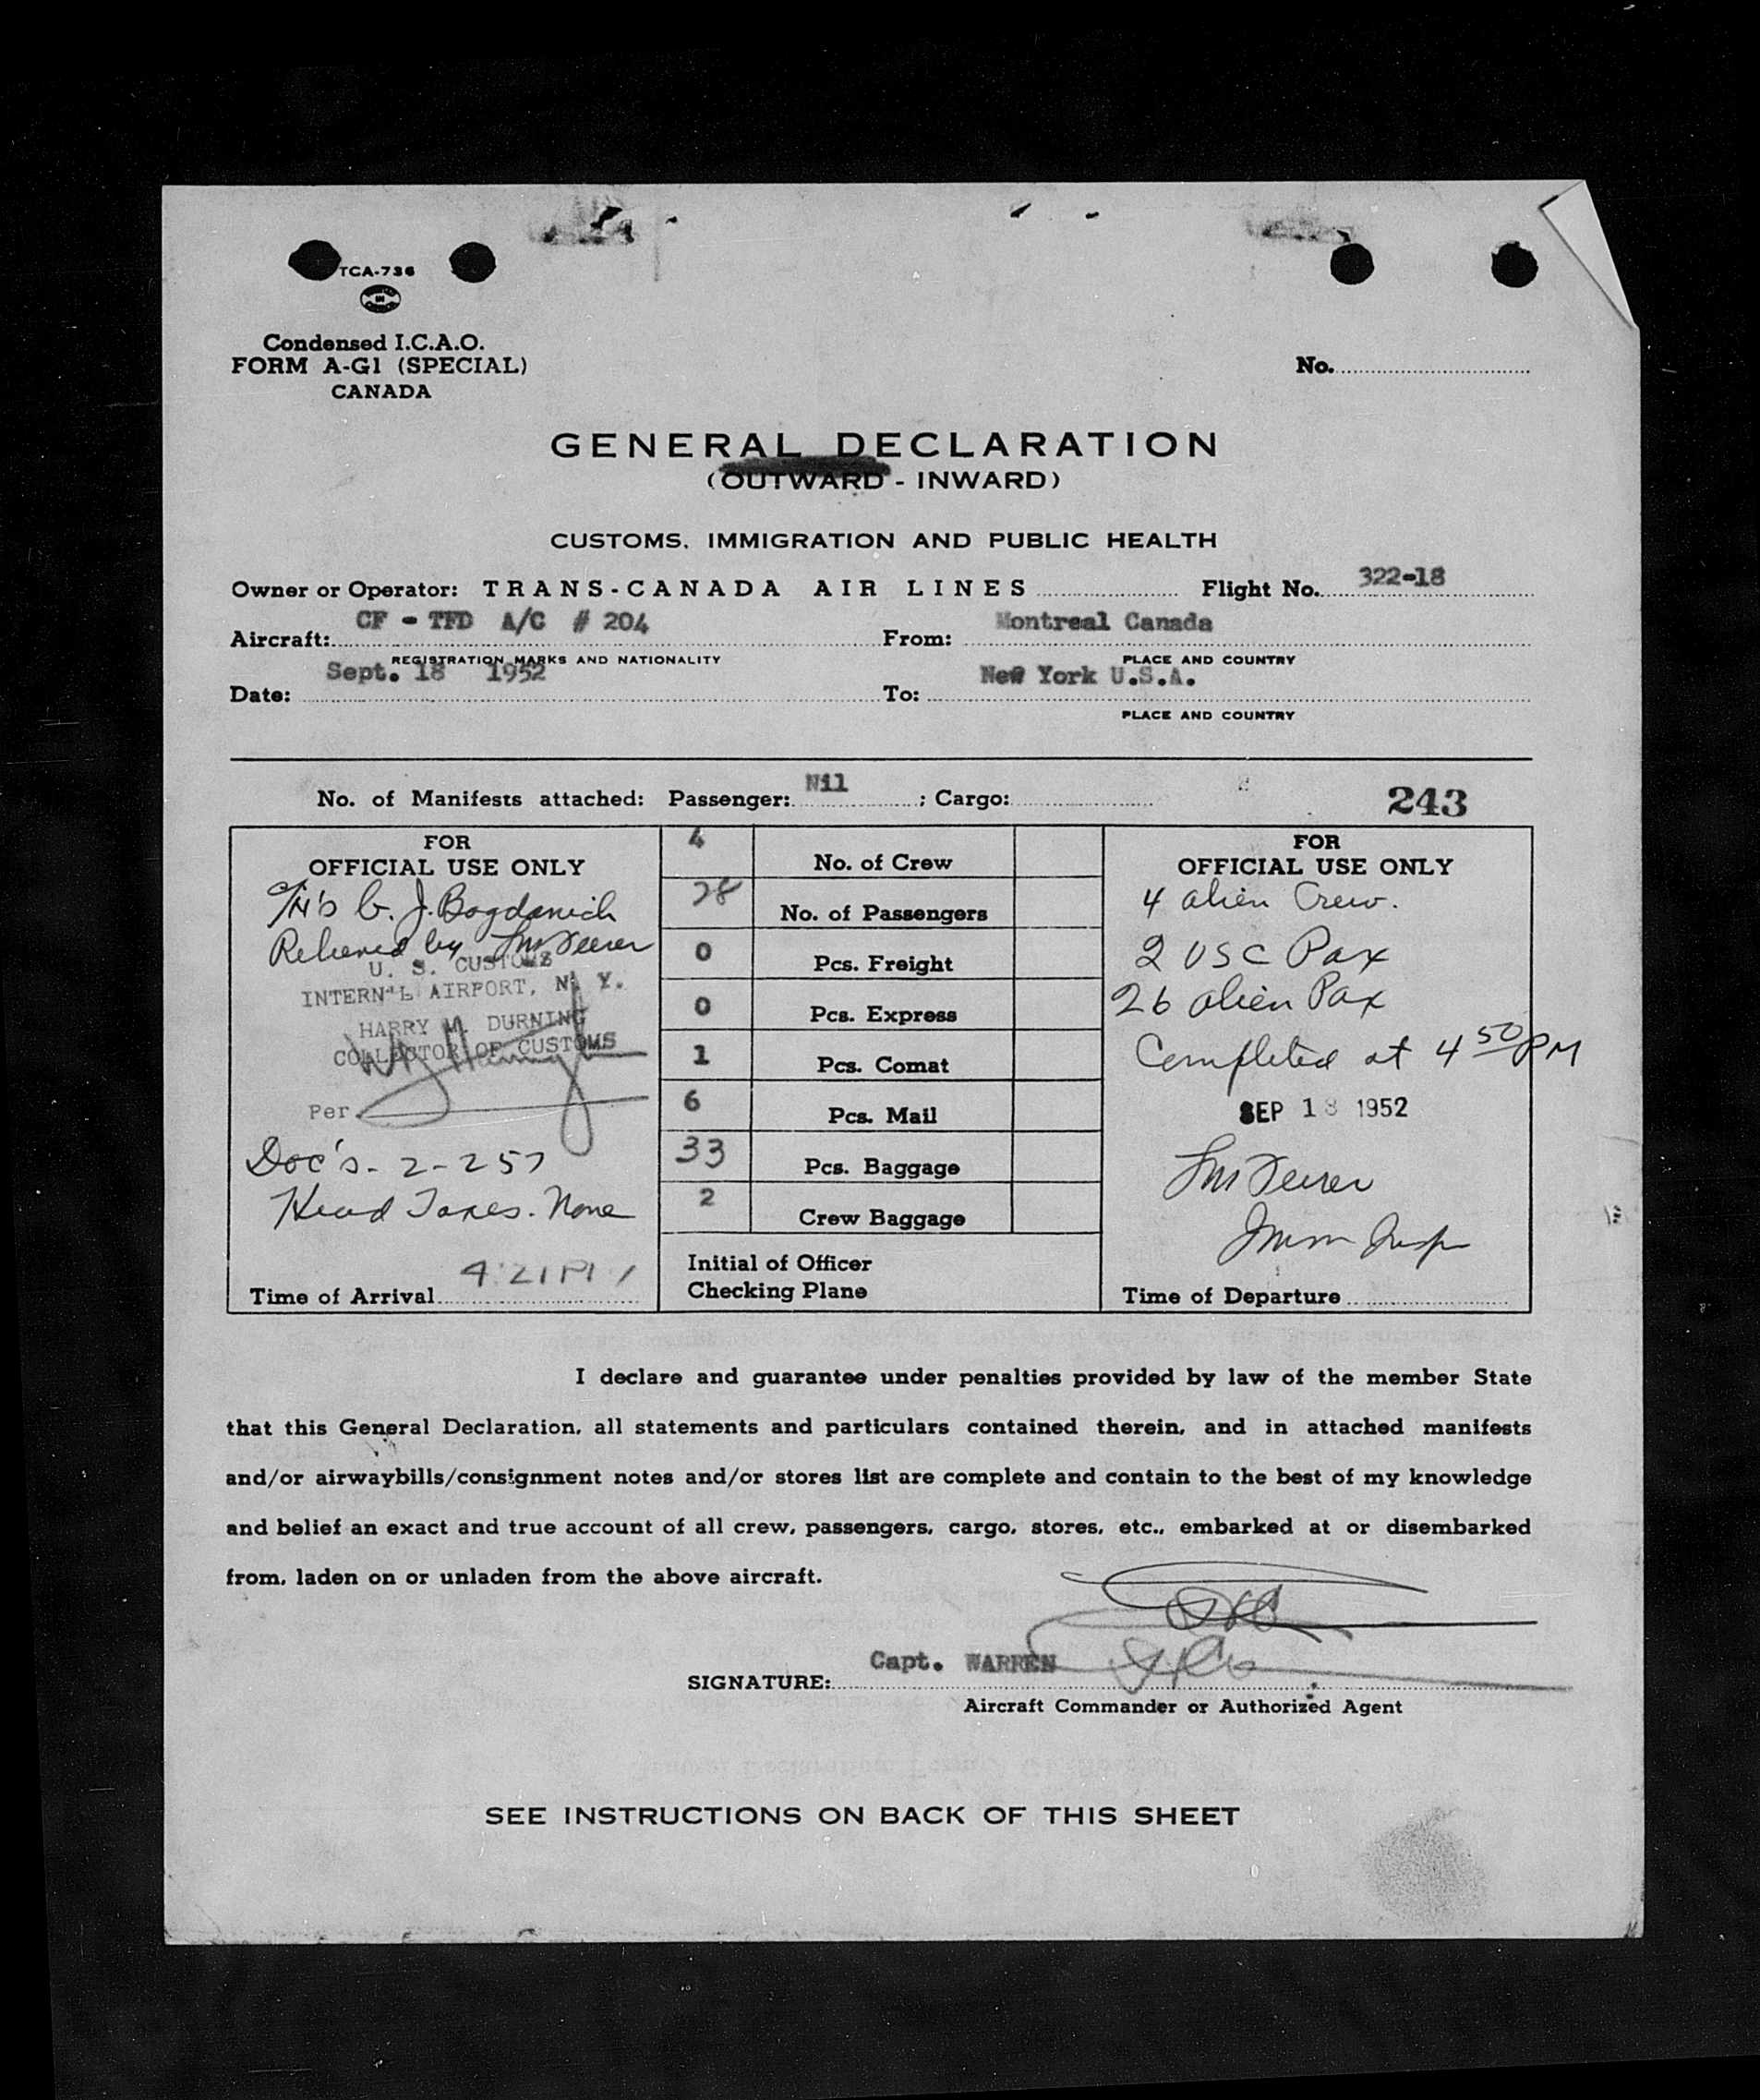 TCA-736
Condensed I.C.A.O.
FORM A-G1 (SPECIAL)
CANADA
No.
GENERAL DECLARATION
(OUTWARD - INWARD)
CUSTOMS, IMMIGRATION AND PUBLIC HEALTH
Owner or Operator: TRANS-CANADA AIR LINES Flight No. 322-18
Aircraft: CF - TFD A/C # 204 From: Montreal Canada
REGISTRATION MARKS AND NATIONALITY PLACE AND COUNTRY
Date: Sept. 18 1952 To: New York U.S.A.
PLACE AND COUNTRY
No. of Manifests attached: Passenger: Nil ; Cargo: 243
FOR
OFFICIAL USE ONLY
J. Bogdanich
Relieved by
U. S. CUSTOMS
INTERN'L AIRPORT, N. Y.
HARRY M. DURNING
COLLECTOR OF CUSTOMS
Per
Doc's - 2-257
Head Taxes. None
Time of Arrival 4:21 PM
4 No. of Crew
28 No. of Passengers
0 Pcs. Freight
0 Pcs. Express
1 Pcs. Comat
6 Pcs. Mail
33 Pcs. Baggage
2 Crew Baggage
Initial of Officer
Checking Plane
FOR
OFFICIAL USE ONLY
4 alien Crew.
2 USC Pax
26 alien Pax
Completed at 4 50 PM
SEP 18 1952
Imm Insp
Time of Departure
I declare and guarantee under penalties provided by law of the member State
that this General Declaration, all statements and particulars contained therein, and in attached manifests
and/or airwaybills/consignment notes and/or stores list are complete and contain to the best of my knowledge
and belief an exact and true account of all crew, passengers, cargo, stores, etc., embarked at or disembarked
from, laden on or unladen from the above aircraft.
SIGNATURE: Capt. WARREN
Aircraft Commander or Authorized Agent
SEE INSTRUCTIONS ON BACK OF THIS SHEET